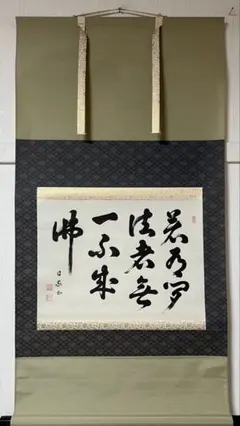 若有聞
法者無
一不成
佛